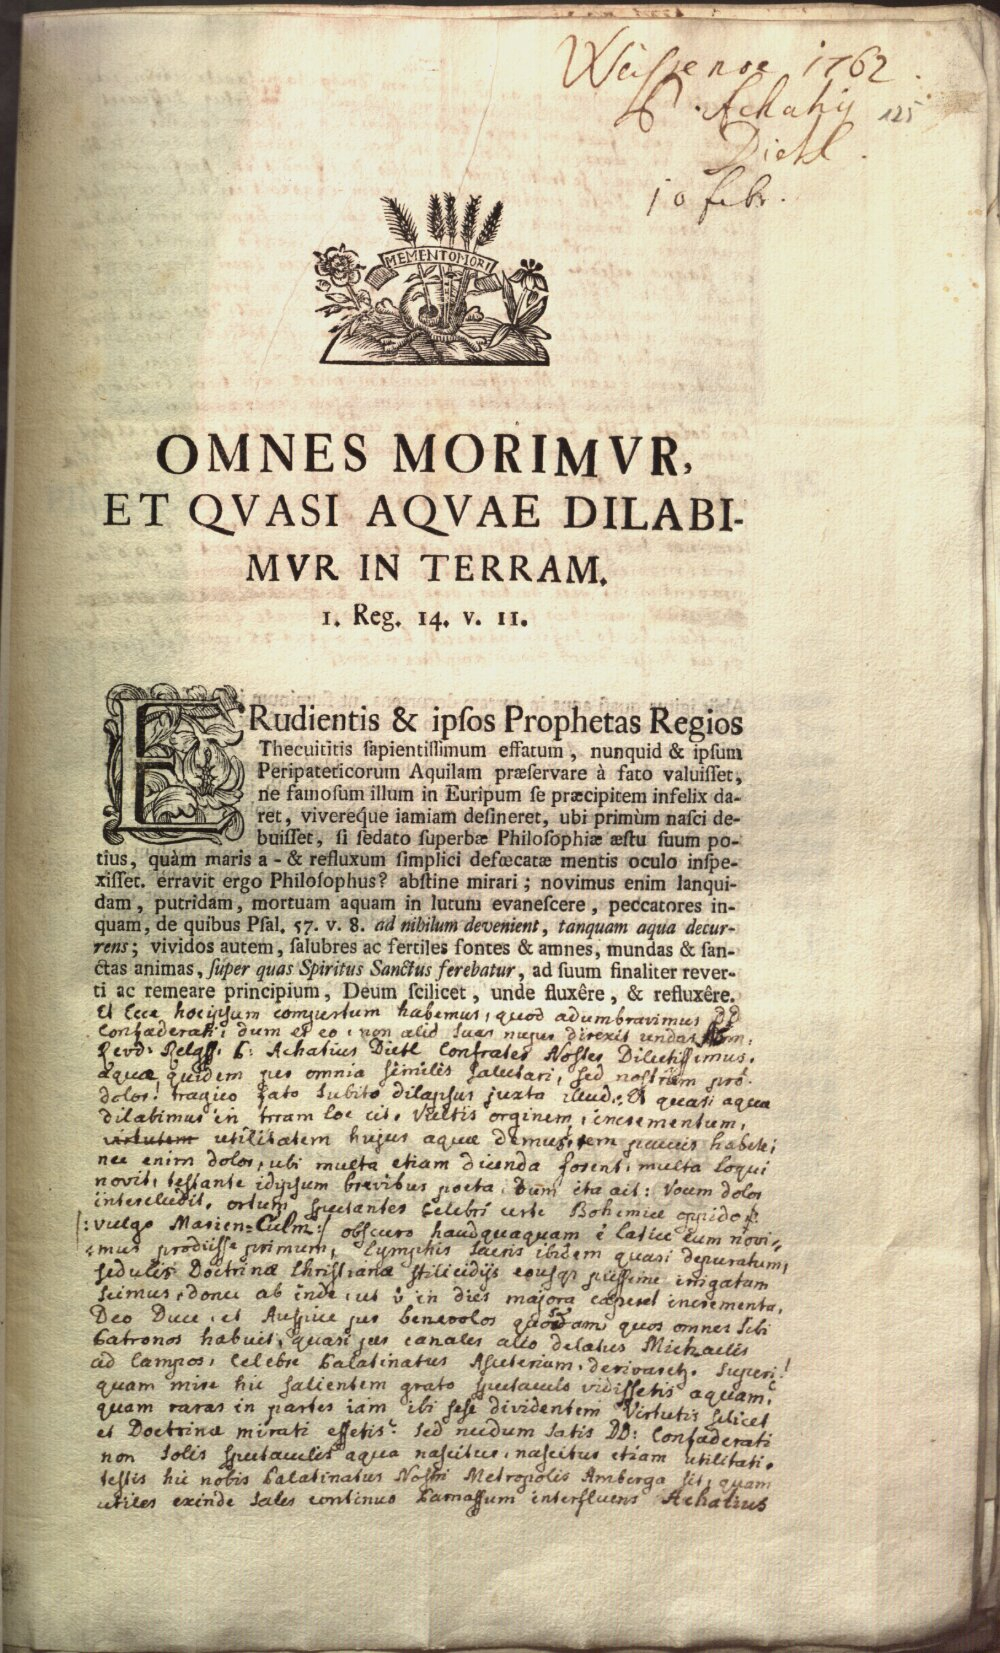 Weissenoe 1762.
P. Achatij 125
Dietl.
10 febr.
MEMENTO MORI
OMNES MORIMVR,
ET QVASI AQVAE DILABI-
MVR IN TERRAM.
1. Reg. 14. v. 11.
ERudientis & ipſos Prophetas Regios
Thecuititis ſapientiſſimum effatum, nunquid & ipſum
Peripateticorum Aquilam præſervare à fato valuiſſet,
ne famoſum illum in Euripum ſe præcipitem infelix da-
ret, vivereque iamiam deſineret, ubi primùm naſci de-
buiſſet, ſi ſedato ſuperbæ Philoſophiæ æſtu ſuum po-
tius, quàm maris a- & refluxum ſimplici defœcatæ mentis oculo inſpe-
xiſſet. erravit ergo Philoſophus? abſtine mirari; novimus enim lanqui-
dam, putridam, mortuam aquam in lutum evaneſcere, peccatores in-
quam, de quibus Pſal. 57. v. 8. ad nihilum devenient, tanquam aqua decur-
rens; vividos autem, ſalubres ac fertiles fontes & amnes, mundas & ſan-
ctas animas, ſuper quas Spiritus Sanctus ferebatur, ad ſuum finaliter rever-
ti ac remeare principium, Deum ſcilicet, unde fluxêre, & refluxêre.
Et Ecce hocipsum compertum habemus, quod adumbravimus DD
Confæderati; dum et eo, non aliò suas nuper direxit undas Adm.
Revd: Relgss. P: Achatius Dietl Confrater Noster Dilectissimus.
aquæ quidem per omnia similis salutari, sed nostrûm pro
dolor! tragico fato subito dilapsus juxta illud: Et quasi aqua
dilabimur in trram loc cit. Vultis orginem, incrementum,
virtutem utilitatem hujus aquæ demus, rem paucis habete;
nec enim dolor, ubi multa etiam dicenda forent, multa loqui
novit, testante idipsum brevibus poeta, dum ita ait: Vocum dolor
intercludit. ortum spectantes Celebri certe Bohemiæ oppido
/: vulgo Marien=Culm :/ obscuro haudquaquam è latice eum novi=
=mus prodiisse primum, Lymphis sacris ibidem quasi depuratum,
sedulis Doctrinæ Christianæ stillicidijs eousq; piissime irrigatam
scimus, donec ab inde, ut in dies majora caperet incrementa,
Deo Duce, et Auspice per benevolos quosdam, quos omnes sibi
Patronos habuit, quasi per canales alio delatus Michaelis
ad Campos, Celebre Palatinatus Asceterium, derivaretr. Superi!
quam mire hic salientem grato spectaculo vidissetis aquam,
quam raras in partes iam ibi sese dividentem Virtutis scilicet
et Doctrinæ mirati essetis. Sed necdum satis DD: Confæderati
non Solis spectaculis aqua nascitur, nascitur etiam utilitati.
testis hic nobis Palatinatus Nostri Metropolis Amberga sit, quam
utiles exinde sales continuo Parnassum interfluens Achatius